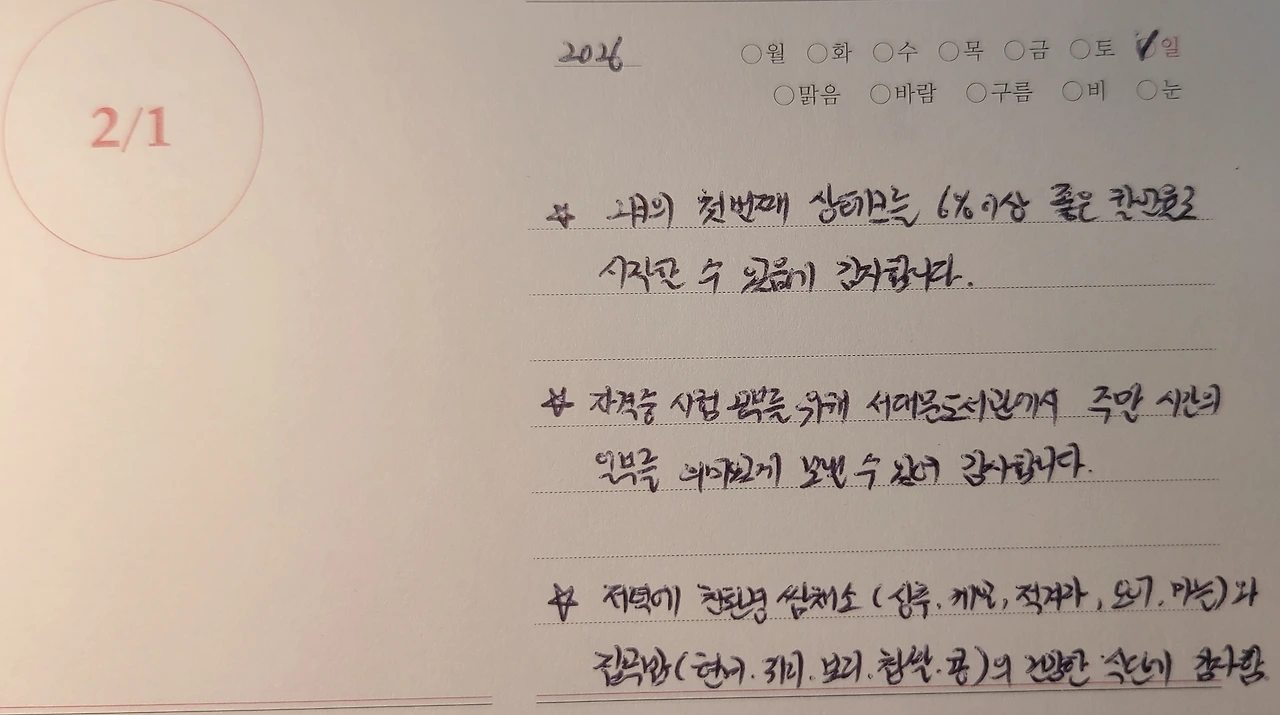 2/1
2026
○월 ○화 ○수 ○목 ○금 ○토 ○일
○맑음 ○바람 ○구름 ○비 ○눈
☆ 2月의 첫번째 상테크를 6%이상 좋은 할인율로
시작할 수 있음에 감사합니다.
☆ 자격증 시험 공부를 위해 서대문도서관에서 주말 시간의
일부를 의미있게 보낼 수 있어 감사합니다.
☆ 저녁에 친환경 쌈채소 (상추. 깻잎, 적겨자, 오이. 마늘)와
잡곡밥(현미. 귀리. 보리. 찹쌀. 콩)의 건강한 식단에 감사함